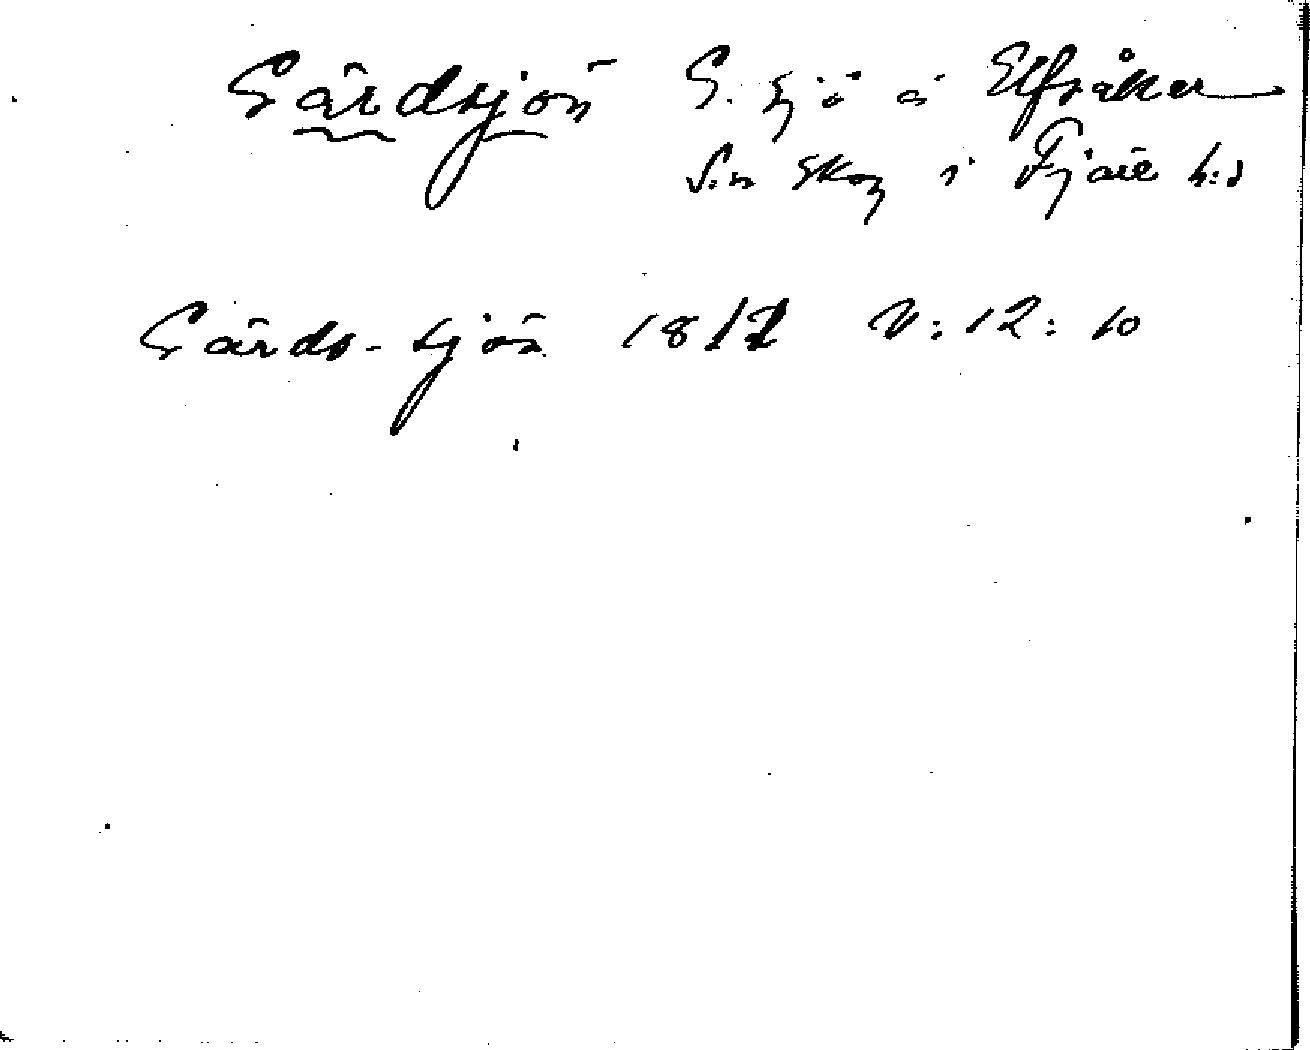 Gärdsjön G. sjö å Elfsåker
s:n skog i Fjäre h:d
Gärds-sjön 18 V:12:10